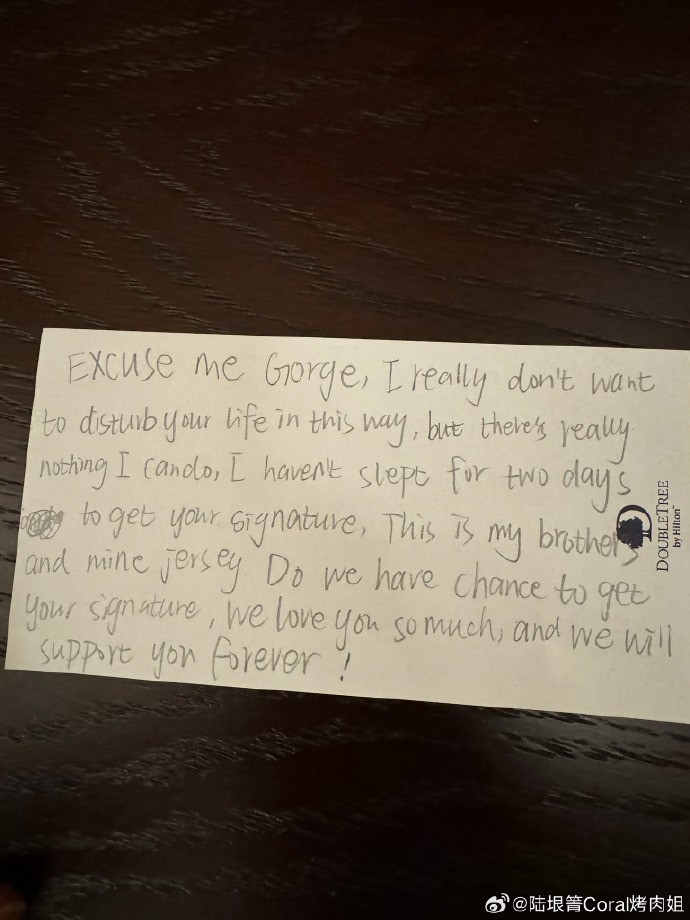 Excuse me Gorge, I really don't want
to disturb your life in this way, but there's really
nothing I can do, I haven't slept for two days
to get your signature, This is my brothers
and mine jersey. Do we have chance to get
your signature, We love you so much, and we will
support you forever!
DOUBLETREE
by Hilton™
@陆垠箐Coral烤肉姐